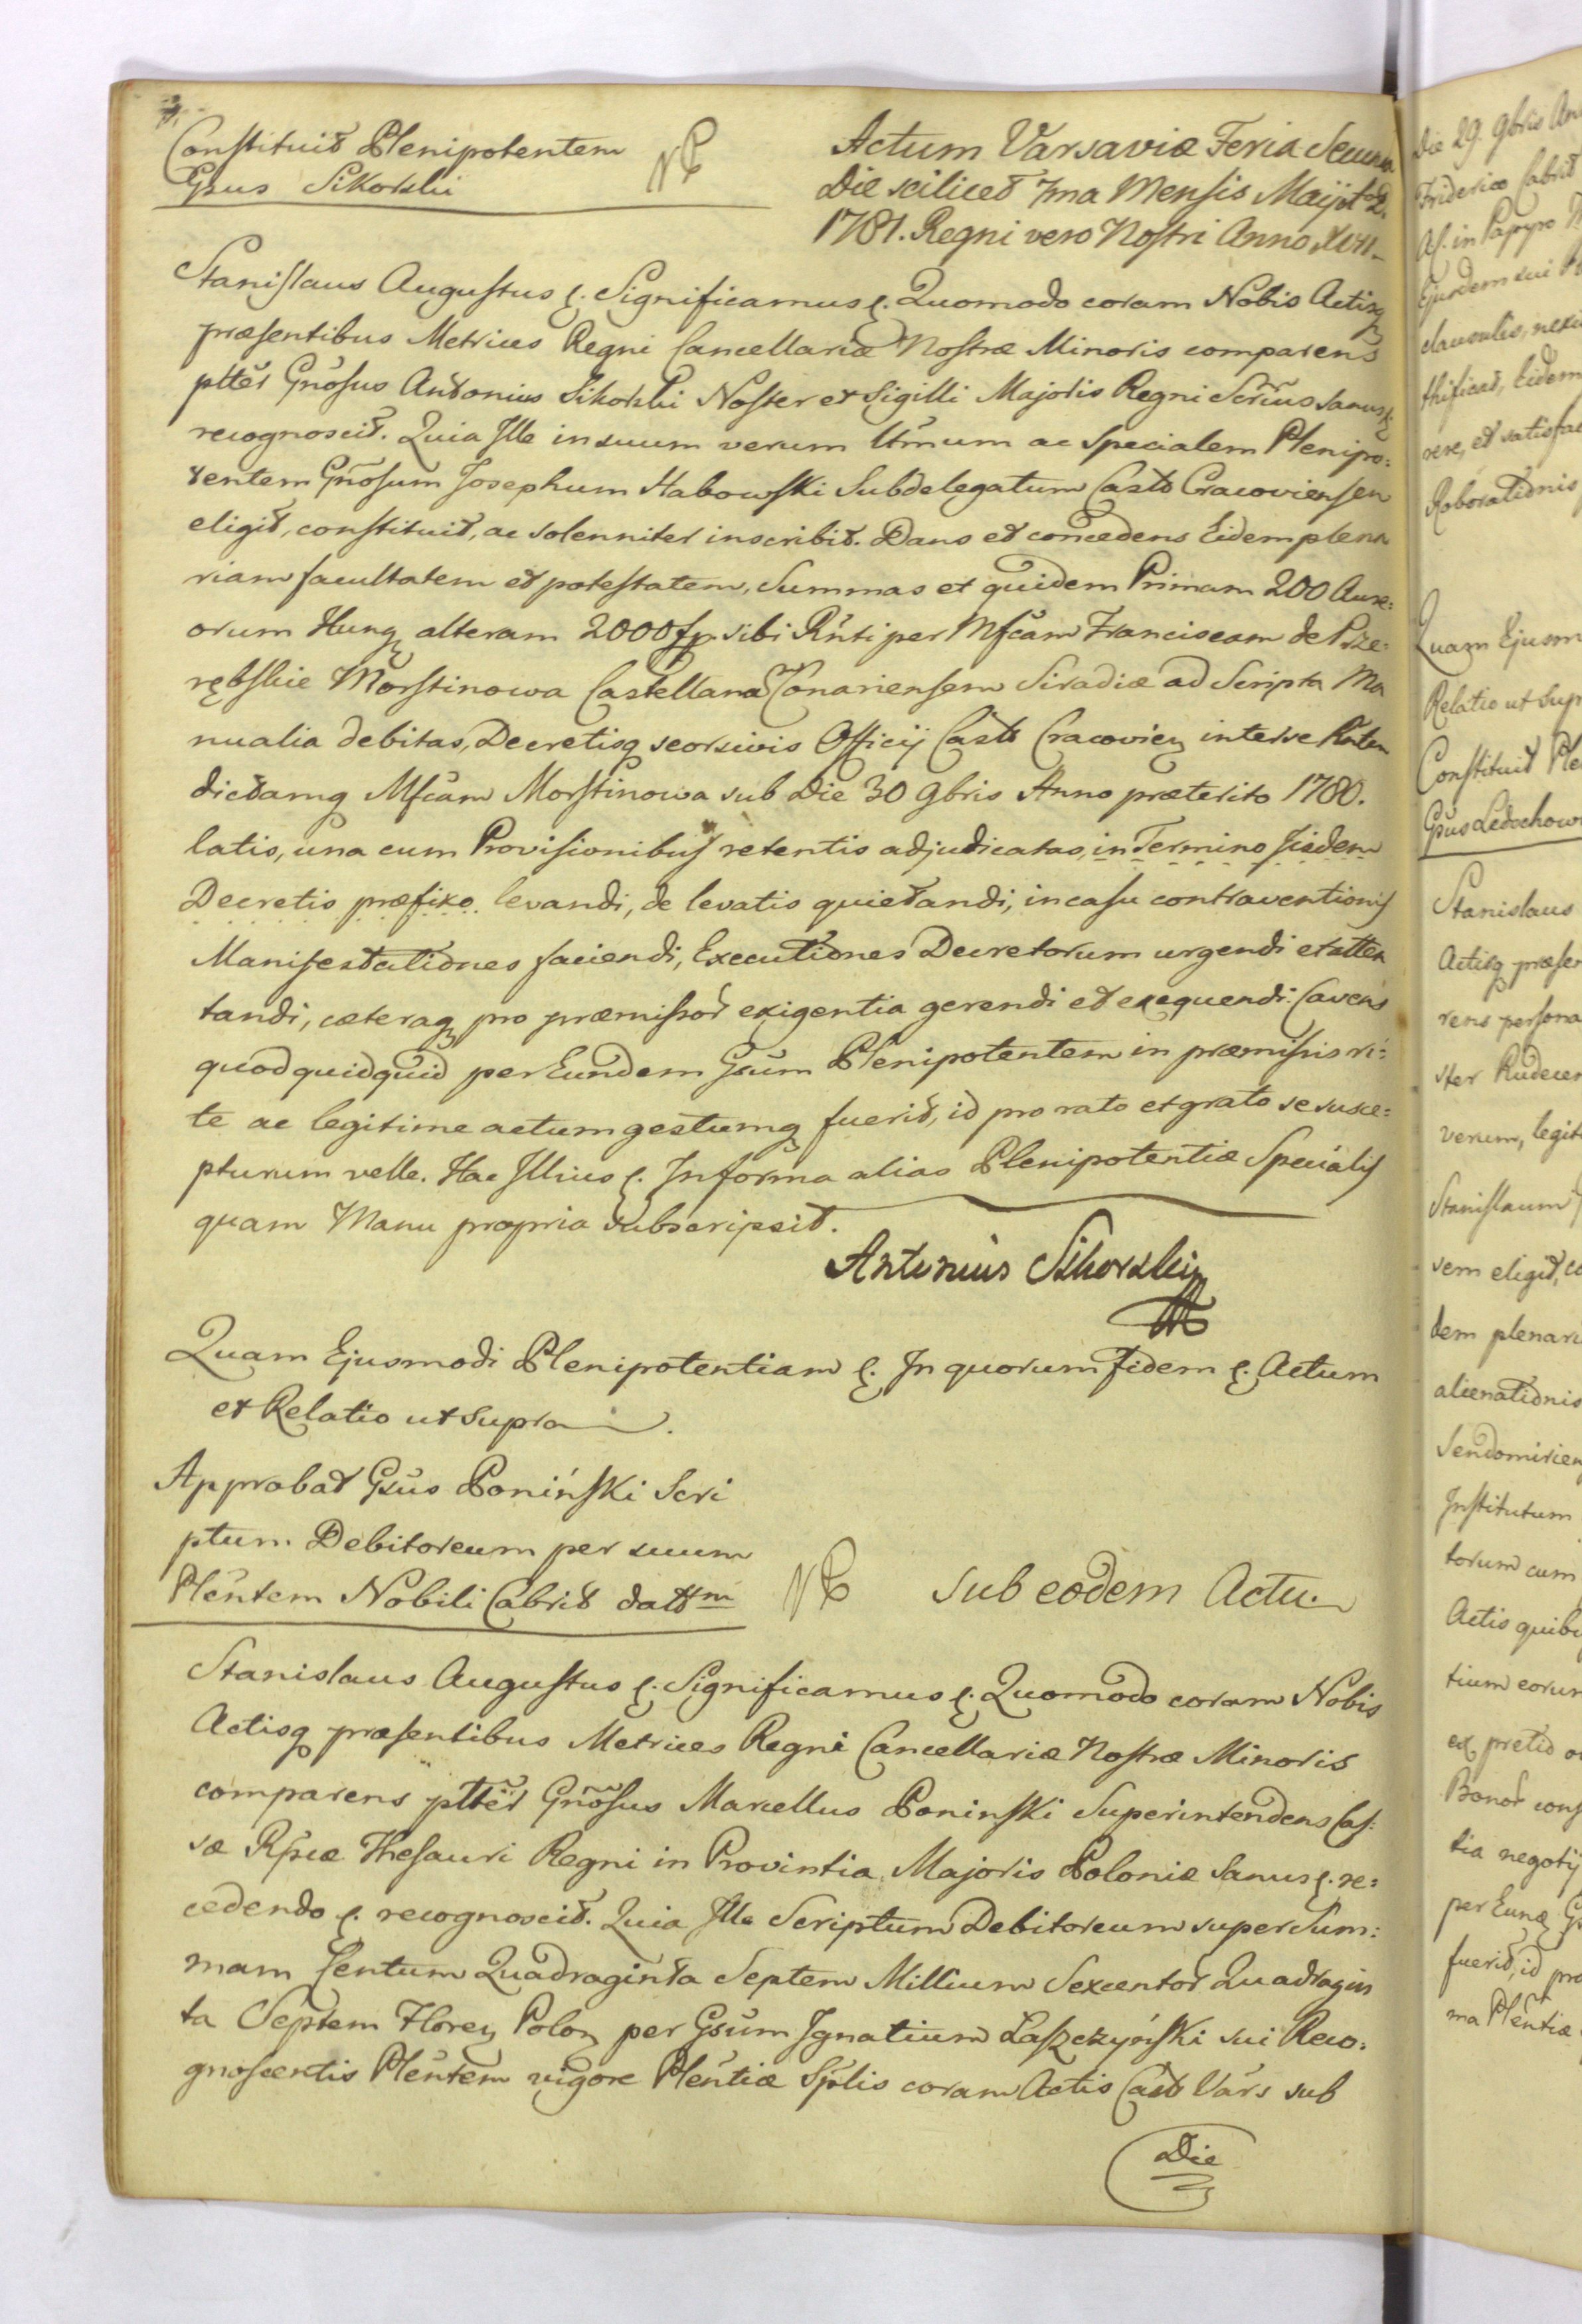 Constituit Plenipotentem
Gsus Sikorski
NP
Actum Varsaviæ Feria Secunda
Die scilicet 7ma Mensis Maij A D.
1781. Regni vero Nostri Anno XVII.
Stanislaus Augustus &. Significamus &. Quomodo coram Nobis Actisq
præsentibus Metrices Regni Cancellariæ Nostræ Minoris comparens
pltter Gnosus Antonius Sikorski Noster et Sigilli Majoris Regni Scrius sanus &
recognoscit. Quia Ille in suum verum ltmum ac Specialem Plenipo:
tentem Gnosum Josephum Habowski Subdelegatum Casts Cracoviensem
eligit, constituit, ac solenniter inscribit. Dans et concedens Eidem plena
riam facultatem et potestatem, Summas et quidem Primam 200 Aure:
orum Hung alteram 2000 fp. sibi Rnti per Mfcam Franciscam de Prze:
rębskie Morstinowa Castellana Conariensem Siradiæ ad Scripta Ma
nualia debitas, Decretisq seorsivis Officij Casts Cracovien inter se Rntem
dictamq Mfcam Morstinowa sub Die 30 9bris Anno præterito 1780.
latis, una cum Provisionibus retentis adjudicatas, in Termino Iisdem
Decretis præfixo levandi, de levatis quietandi, in casu contraventionis
Manifestationes faciendi, Executiones Decretorum urgendi et atten
tandi, cæteraq pro præmissor exigentia gerendi et exequendi. Cavens
quod quidquid per Eundem Gsum Plenipotentem in præmissis ri:
te ac legitime actum gestumq fuerit, id pro rato et grato se susce:
pturum velle. Hac Illius &. In forma alias Plenipotentiæ Specialis
quam Manu propria subscripsit.
Antonius Sikorski
Quam Ejusmodi Plenipotentiam &. In quorum fidem &. Actum
et Relatio ut supra.
Approbat Gsus Poniński Scri
ptum Debitoreum per suum
Plentem Nobili Cabrit dattm
NP
sub eodem Actu.
Stanislaus Augustus &. Significamus &. Quomodo coram Nobis
Actisq præsentibus Metrices Regni Cancellariæ Nostræ Minoris
comparens pltter Gnosus Marcellus Poninski Superintendens Cas:
sæ Rpcæ Thesauri Regni in Provintia Majoris Poloniæ Sanus &. re:
cedendo &. recognoscit. Quia Ille Scriptum Debitoreum super Sum:
mam Centum Quadraginta Septem Millium Sexcentor Quadragin
ta Septem Floren Polon per Gsum Ignatium Laszczyński sui Reco:
gnoscentis Plentem vigore Plentiæ Splis coram Actis Casts Vars sub
Die
Die 29. 9bris
Friderico Cabrit
As. in Papyro
Ejusdem sui
clausulis,
thificat, Eidem
rere, et
Roborationis
Quam Ejusm
Relatio ut Supr
Constituit Ple
Gsus Ledochow
Stanislaus
Actisq præsen
rens persona
ster
verum, legit
Stanislaum
sem eligit, co
dem plenari
alienationis
Sendomirien
Institutum
torum cum
Actis quibu
tium eorum
ex pretio
Bonor cons
tia negotij
per Eund
fuerit, id pro
ma Plentiæ